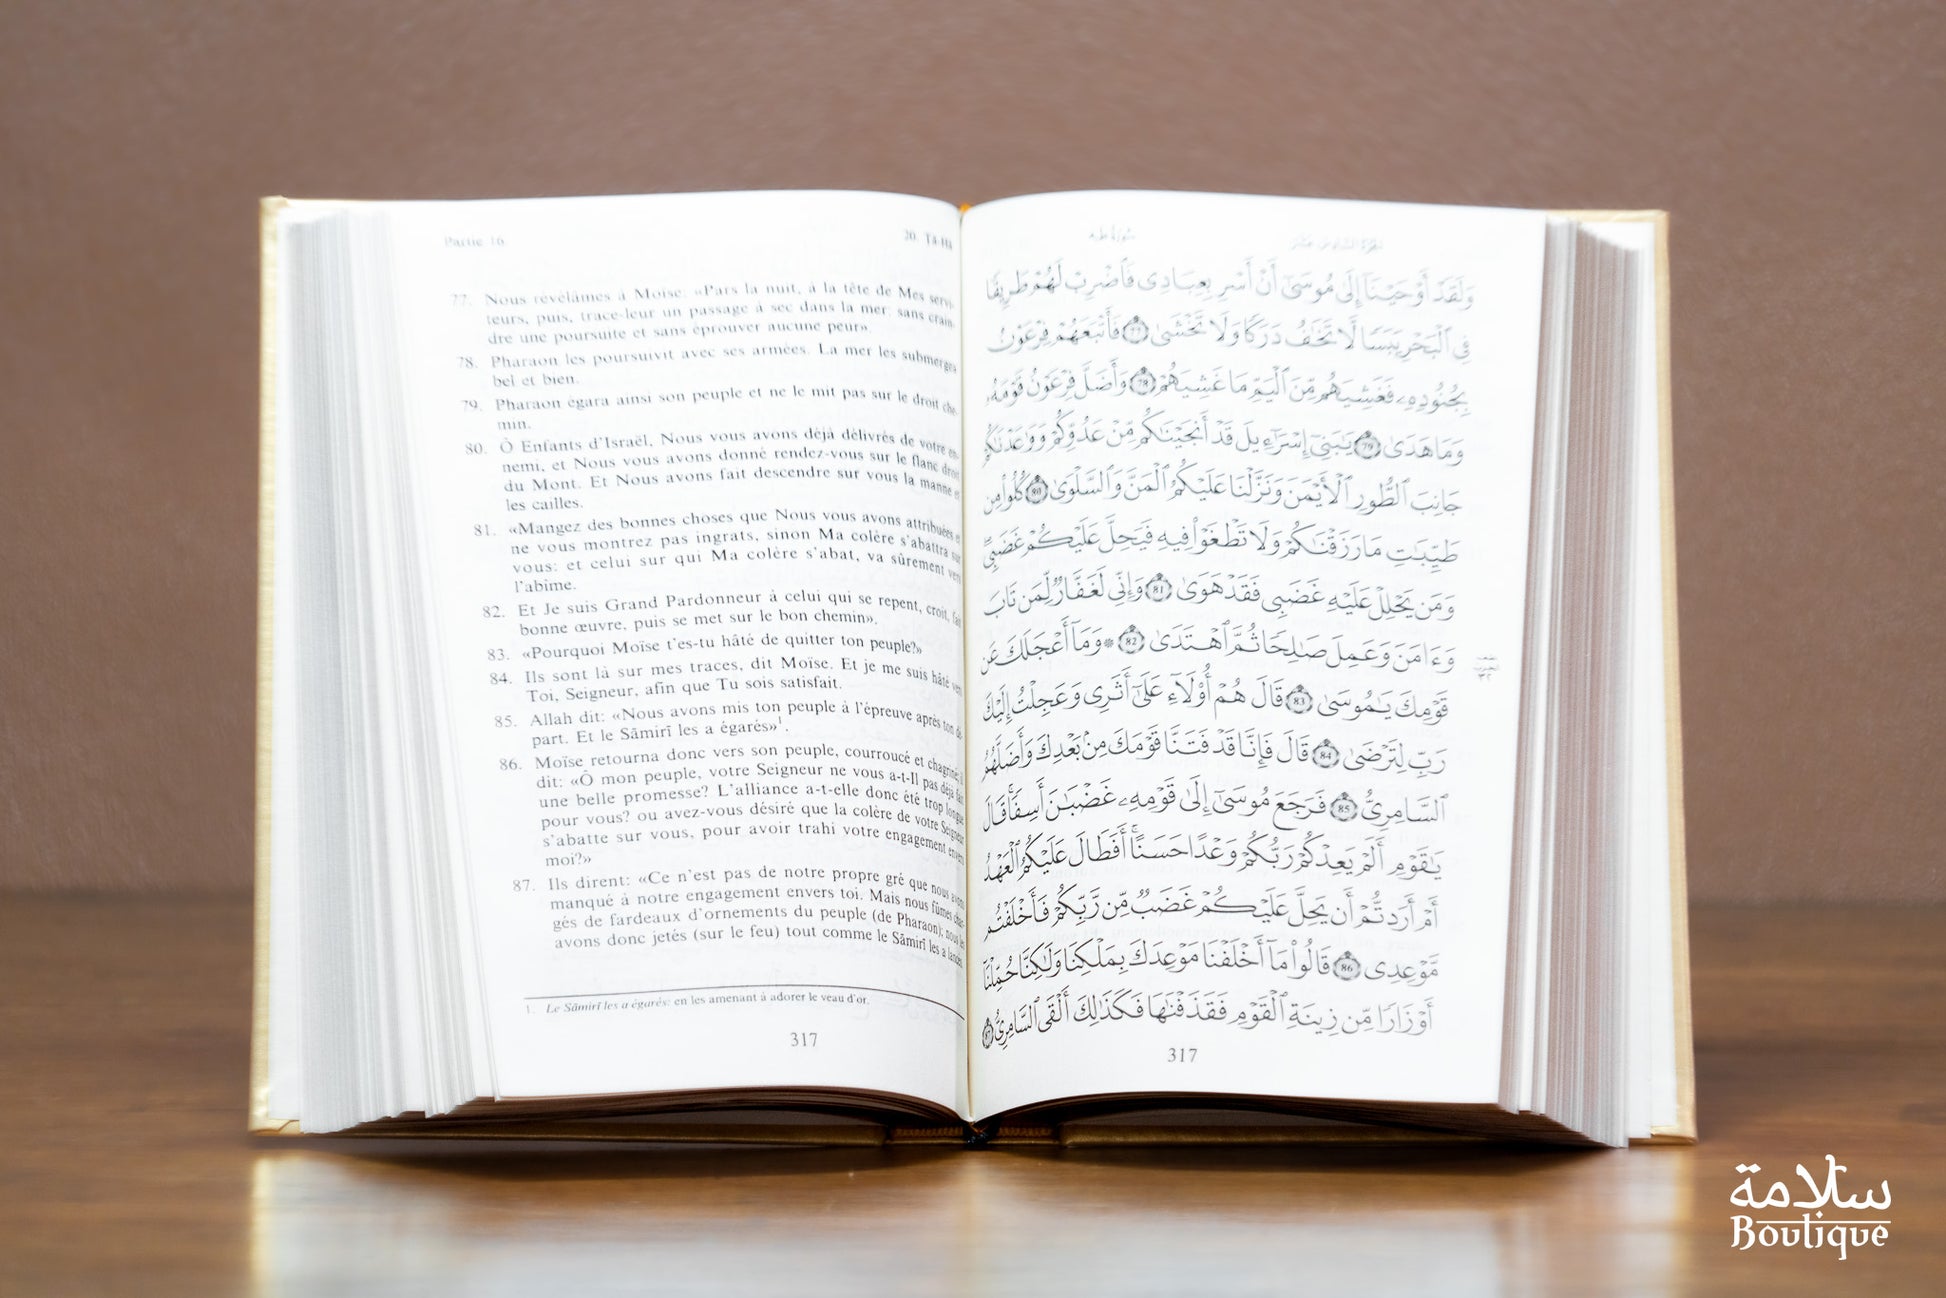 Partie 16
20. Tā-Hā
77. Nous révélâmes à Moïse: «Pars la nuit, à la tête de Mes servi-
teurs, puis, trace-leur un passage à sec dans la mer: sans crain-
dre une poursuite et sans éprouver aucune peur».
78. Pharaon les poursuivit avec ses armées. La mer les submergea
bel et bien.
79. Pharaon égara ainsi son peuple et ne le mit pas sur le droit che-
min.
80. Ô Enfants d'Israël, Nous vous avons déjà délivrés de votre en-
nemi, et Nous vous avons donné rendez-vous sur le flanc droit
du Mont. Et Nous avons fait descendre sur vous la manne et
les cailles.
81. «Mangez des bonnes choses que Nous vous avons attribuées et
ne vous montrez pas ingrats, sinon Ma colère s'abattra sur
vous: et celui sur qui Ma colère s'abat, va sûrement vers
l'abîme.
82. Et Je suis Grand Pardonneur à celui qui se repent, croit, fait
bonne œuvre, puis se met sur le bon chemin».
83. «Pourquoi Moïse t'es-tu hâté de quitter ton peuple?»
84. Ils sont là sur mes traces, dit Moïse. Et je me suis hâté vers
Toi, Seigneur, afin que Tu sois satisfait.
85. Allah dit: «Nous avons mis ton peuple à l'épreuve après ton dé-
part. Et le Sāmirī les a égarés»¹.
86. Moïse retourna donc vers son peuple, courroucé et chagriné; il
dit: «Ô mon peuple, votre Seigneur ne vous a-t-Il pas déjà fait
une belle promesse? L'alliance a-t-elle donc été trop longue
pour vous? ou avez-vous désiré que la colère de votre Seigneur
s'abatte sur vous, pour avoir trahi votre engagement envers
moi?»
87. Ils dirent: «Ce n'est pas de notre propre gré que nous avons
manqué à notre engagement envers toi. Mais nous fûmes char-
gés de fardeaux d'ornements du peuple (de Pharaon); nous les
avons donc jetés (sur le feu) tout comme le Sāmirī les a lancés.
1. Le Sāmirī les a égarés: en les amenant à adorer le veau d'or.
317
الجزء السادس عشر
سورة طه
وَلَقَدْ أَوْحَيْنَآ إِلَىٰ مُوسَىٰٓ أَنْ أَسْرِ بِعِبَادِى فَٱضْرِبْ لَهُمْ طَرِيقًا
فِى ٱلْبَحْرِ يَبَسًا لَّا تَخَٰفُ دَرَكًا وَلَا تَخْشَىٰ 77 فَأَتْبَعَهُمْ فِرْعَوْنُ
بِجُنُودِهِۦ فَغَشِيَهُم مِّنَ ٱلْيَمِّ مَا غَشِيَهُمْ 78 وَأَضَلَّ فِرْعَوْنُ قَوْمَهُۥ
وَمَا هَدَىٰ 79 يَٰبَنِىٓ إِسْرَٰٓءِيلَ قَدْ أَنجَيْنَٰكُم مِّنْ عَدُوِّكُمْ وَوَٰعَدْنَٰكُمْ
جَانِبَ ٱلطُّورِ ٱلْأَيْمَنَ وَنَزَّلْنَا عَلَيْكُمُ ٱلْمَنَّ وَٱلسَّلْوَىٰ 80 كُلُوا۟ مِن
طَيِّبَٰتِ مَا رَزَقْنَٰكُمْ وَلَا تَطْغَوْا۟ فِيهِ فَيَحِلَّ عَلَيْكُمْ غَضَبِى
وَمَن يَحْلِلْ عَلَيْهِ غَضَبِى فَقَدْ هَوَىٰ 81 وَإِنِّى لَغَفَّارٌ لِّمَن تَابَ
وَءَامَنَ وَعَمِلَ صَٰلِحًا ثُمَّ ٱهْتَدَىٰ 82 ۞ وَمَآ أَعْجَلَكَ عَن
قَوْمِكَ يَٰمُوسَىٰ 83 قَالَ هُمْ أُو۟لَآءِ عَلَىٰٓ أَثَرِى وَعَجِلْتُ إِلَيْكَ
رَبِّ لِتَرْضَىٰ 84 قَالَ فَإِنَّا قَدْ فَتَنَّا قَوْمَكَ مِنۢ بَعْدِكَ وَأَضَلَّهُمُ
ٱلسَّامِرِىُّ 85 فَرَجَعَ مُوسَىٰٓ إِلَىٰ قَوْمِهِۦ غَضْبَٰنَ أَسِفًا ۚ قَالَ
يَٰقَوْمِ أَلَمْ يَعِدْكُمْ رَبُّكُمْ وَعْدًا حَسَنًا ۚ أَفَطَالَ عَلَيْكُمُ ٱلْعَهْدُ
أَمْ أَرَدتُّمْ أَن يَحِلَّ عَلَيْكُمْ غَضَبٌ مِّن رَّبِّكُمْ فَأَخْلَفْتُم
مَّوْعِدِى 86 قَالُوا۟ مَآ أَخْلَفْنَا مَوْعِدَكَ بِمَلْكِنَا وَلَٰكِنَّا حُمِّلْنَآ
أَوْزَارًا مِّن زِينَةِ ٱلْقَوْمِ فَقَذَفْنَٰهَا فَكَذَٰلِكَ أَلْقَى ٱلسَّامِرِىُّ 87
317
سلامة
Boutique